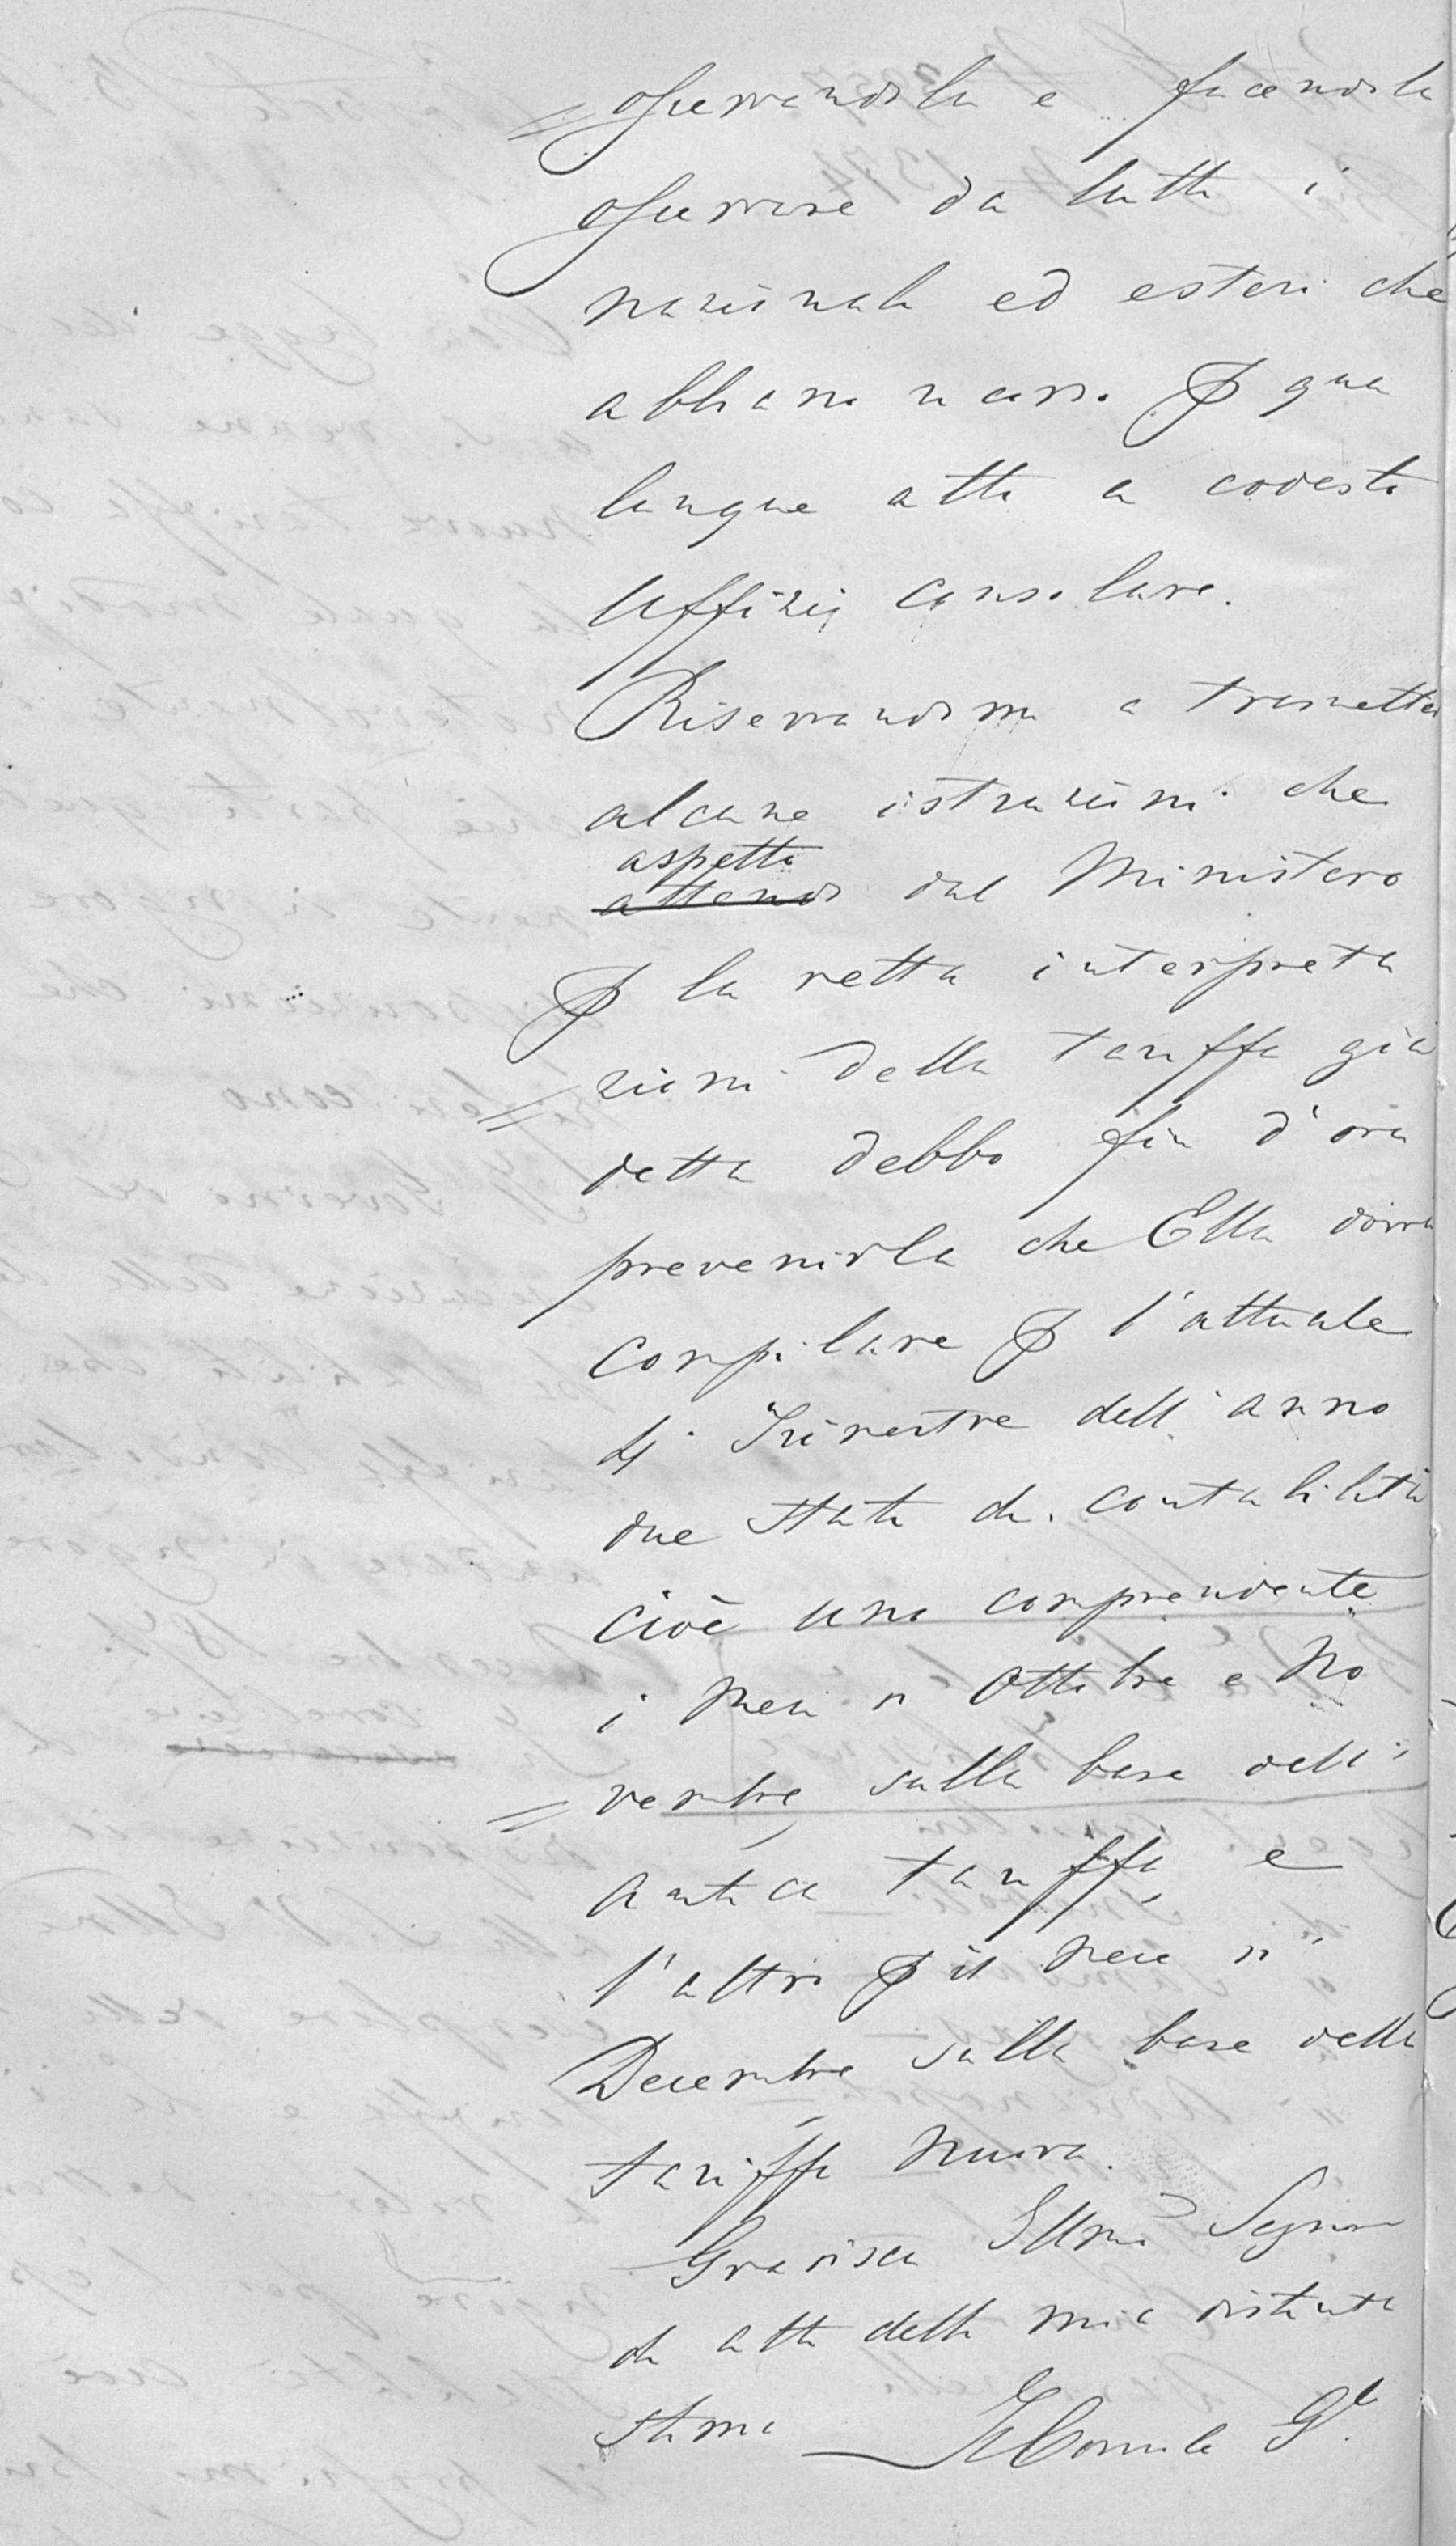 osservandola e facendola
osservare da tutti i
nazionali ed esteri che
abbiano ricorso p qua
lunque atto a codesto
Uffizio consolare.
Riservandomi a trasmetter
alcune istruzioni che
aspetto
attendo dal Ministero
p la retta interpreta
zione della tariffa già
detta debbo fin d'ora
prevenirla che Ella dovrà
compilare p l'attuale
4° Trimestre dell'anno
due stati di contabilità
cioè uno comprendente
i mesi di Ottobre e No
vembre, sulla base dell'
antica tariffa, e
l'altro p il mese di
Decembre sulla base della
tariffa nuova.
Gradisca Illmo Signore
gli atti della mia distinta
stima Il Console Gle